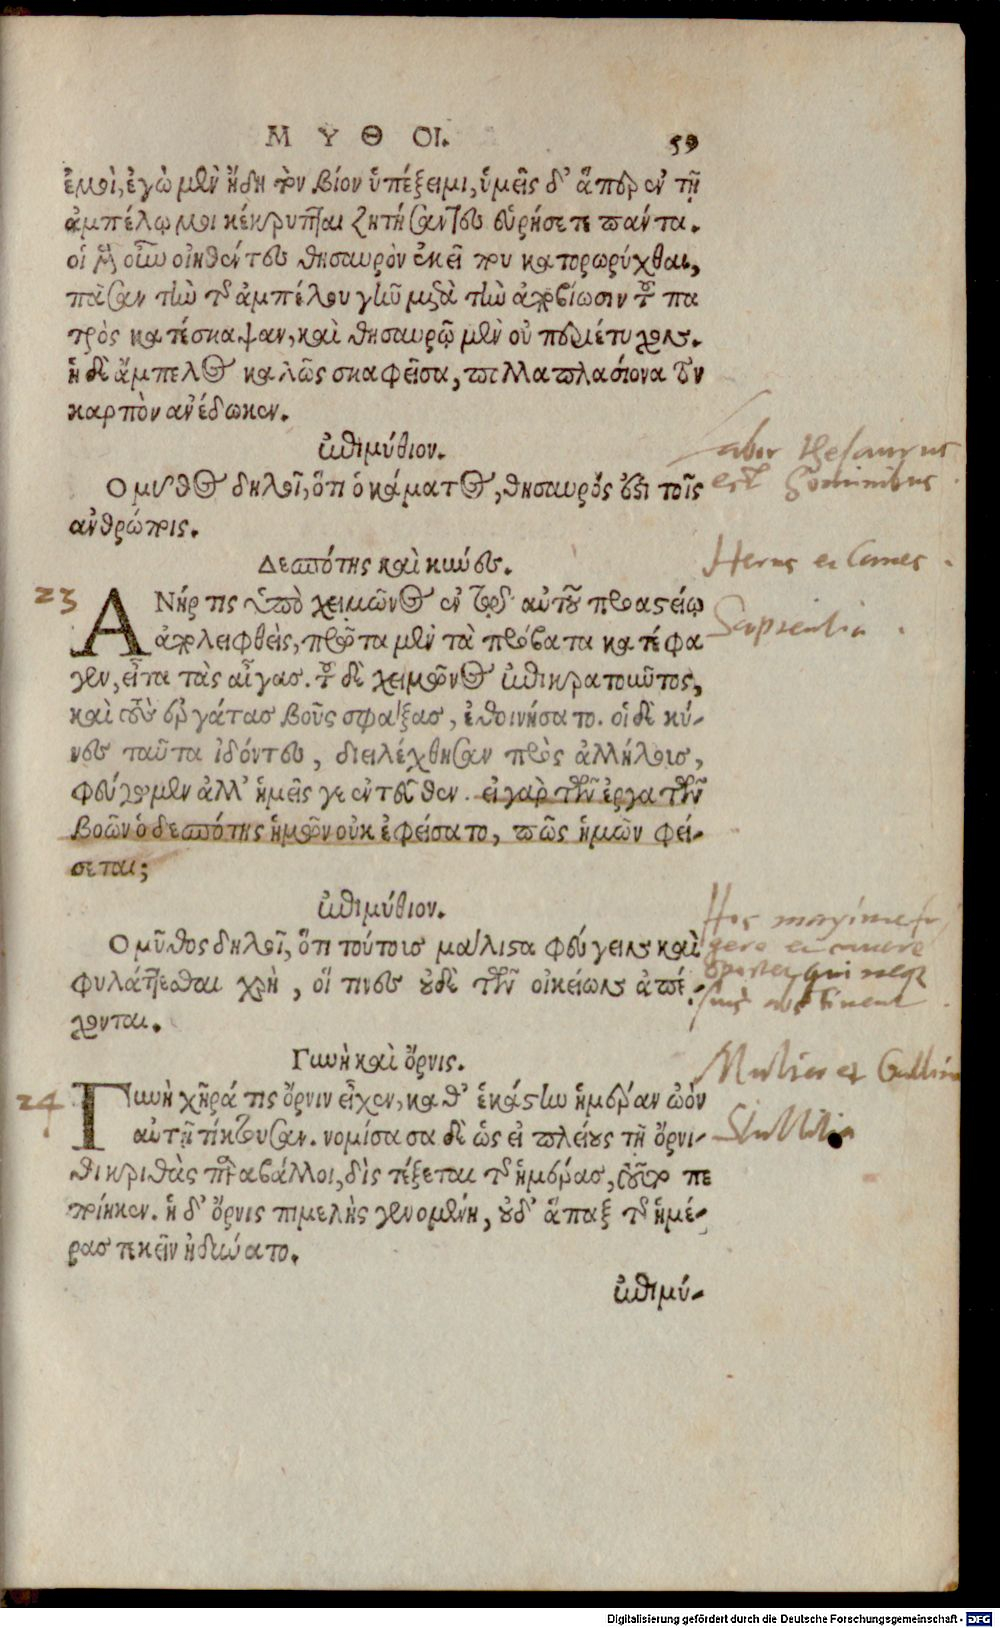 ΜΥΘΟΙ. 59
ἐμοὶ, ἐγὼ μὲν ἤδη τὸν βίον ὑπέξειμι, ὑμεῖς δ' ἅπερ ἐν τῇ
ἀμπέλῳ μοι κέκρυπται ζητήσαντες εὑρήσετε πάντα.
οἱ μὲν οὖν οἰηθέντες θησαυρὸν ἐκεῖ που κατορωρύχθαι,
πᾶσαν τὴν τῆς ἀμπέλου γῆν μετὰ τὴν ἀποβίωσιν τοῦ πα
τρὸς κατέσκαψαν, καὶ θησαυρῷ μὲν οὐ περιέτυχον.
ἡ δὲ ἄμπελος καλῶς σκαφεῖσα, πολλαπλασίονα τὸν
καρπὸν ἀνέδωκεν.
ἐπιμύθιον.
Labor thesaurus
Ο μῦθος δηλοῖ, ὅτι ὁ κάματος, θησαυρός ἐστι τοῖς
est hominibus.
ἀνθρώποις.
Δεσπότης καὶ κύνες.
Herus et Canes.
23
ΑΝήρ τις ὑπὸ χειμῶνος ἐν τῷ αὐτοῦ προαστείῳ
Sapientia.
ἀποληφθεὶς, πρῶτα μὲν τὰ πρόβατα κατέφα
γεν, εἶτα τὰς αἶγας. τοῦ δὲ χειμῶνος ἐπικρατοῦντος,
καὶ τοὺς ἐργάτας βοῦς σφάξας, ἐθοινήσατο. οἱ δὲ κύ-
νες ταῦτα ἰδόντες, διελέχθησαν πρὸς ἀλλήλοις,
φεύγωμεν ἀλλ' ἡμεῖς γε ἐντεῦθεν. εἰ γὰρ τῶν ἐργατῶν
βοῶν ὁ δεσπότης ἡμῶν οὐκ ἐφείσατο, πῶς ἡμῶν φεί-
σεται;
ἐπιμύθιον.
Hos maxime fu
Ο μῦθος δηλοῖ, ὅτι τούτοις μάλιστα φεύγειν καὶ
gere et cavere
φυλάττεσθαι χρὴ, οἵ τινες οὐδὲ τῶν οἰκείων ἀπέ-
oportet, qui neque
suis abstinent.
χονται.
Γυνὴ καὶ ὄρνις.
Mulier et Gallina
24
Γυνὴ χῆρά τις ὄρνιν εἶχεν, καθ' ἑκάστην ἡμέραν ὠὸν
Stultitia
αὐτῇ τίκτουσαν. νομίσασα δὲ ὡς εἰ πλείους τῇ ὄρνι-
θι κριθὰς παραβάλλοι, δὶς τέξεται τῆς ἡμέρας, τοῦτο πε
ποίηκεν. ἡ δ' ὄρνις πιμελὴς γενομένη, οὐδ' ἅπαξ τῆς ἡμέ-
ρας τεκεῖν ἠδύνατο.
ἐπιμύ-
Digitalisierung gefördert durch die Deutsche Forschungsgemeinschaft - DFG